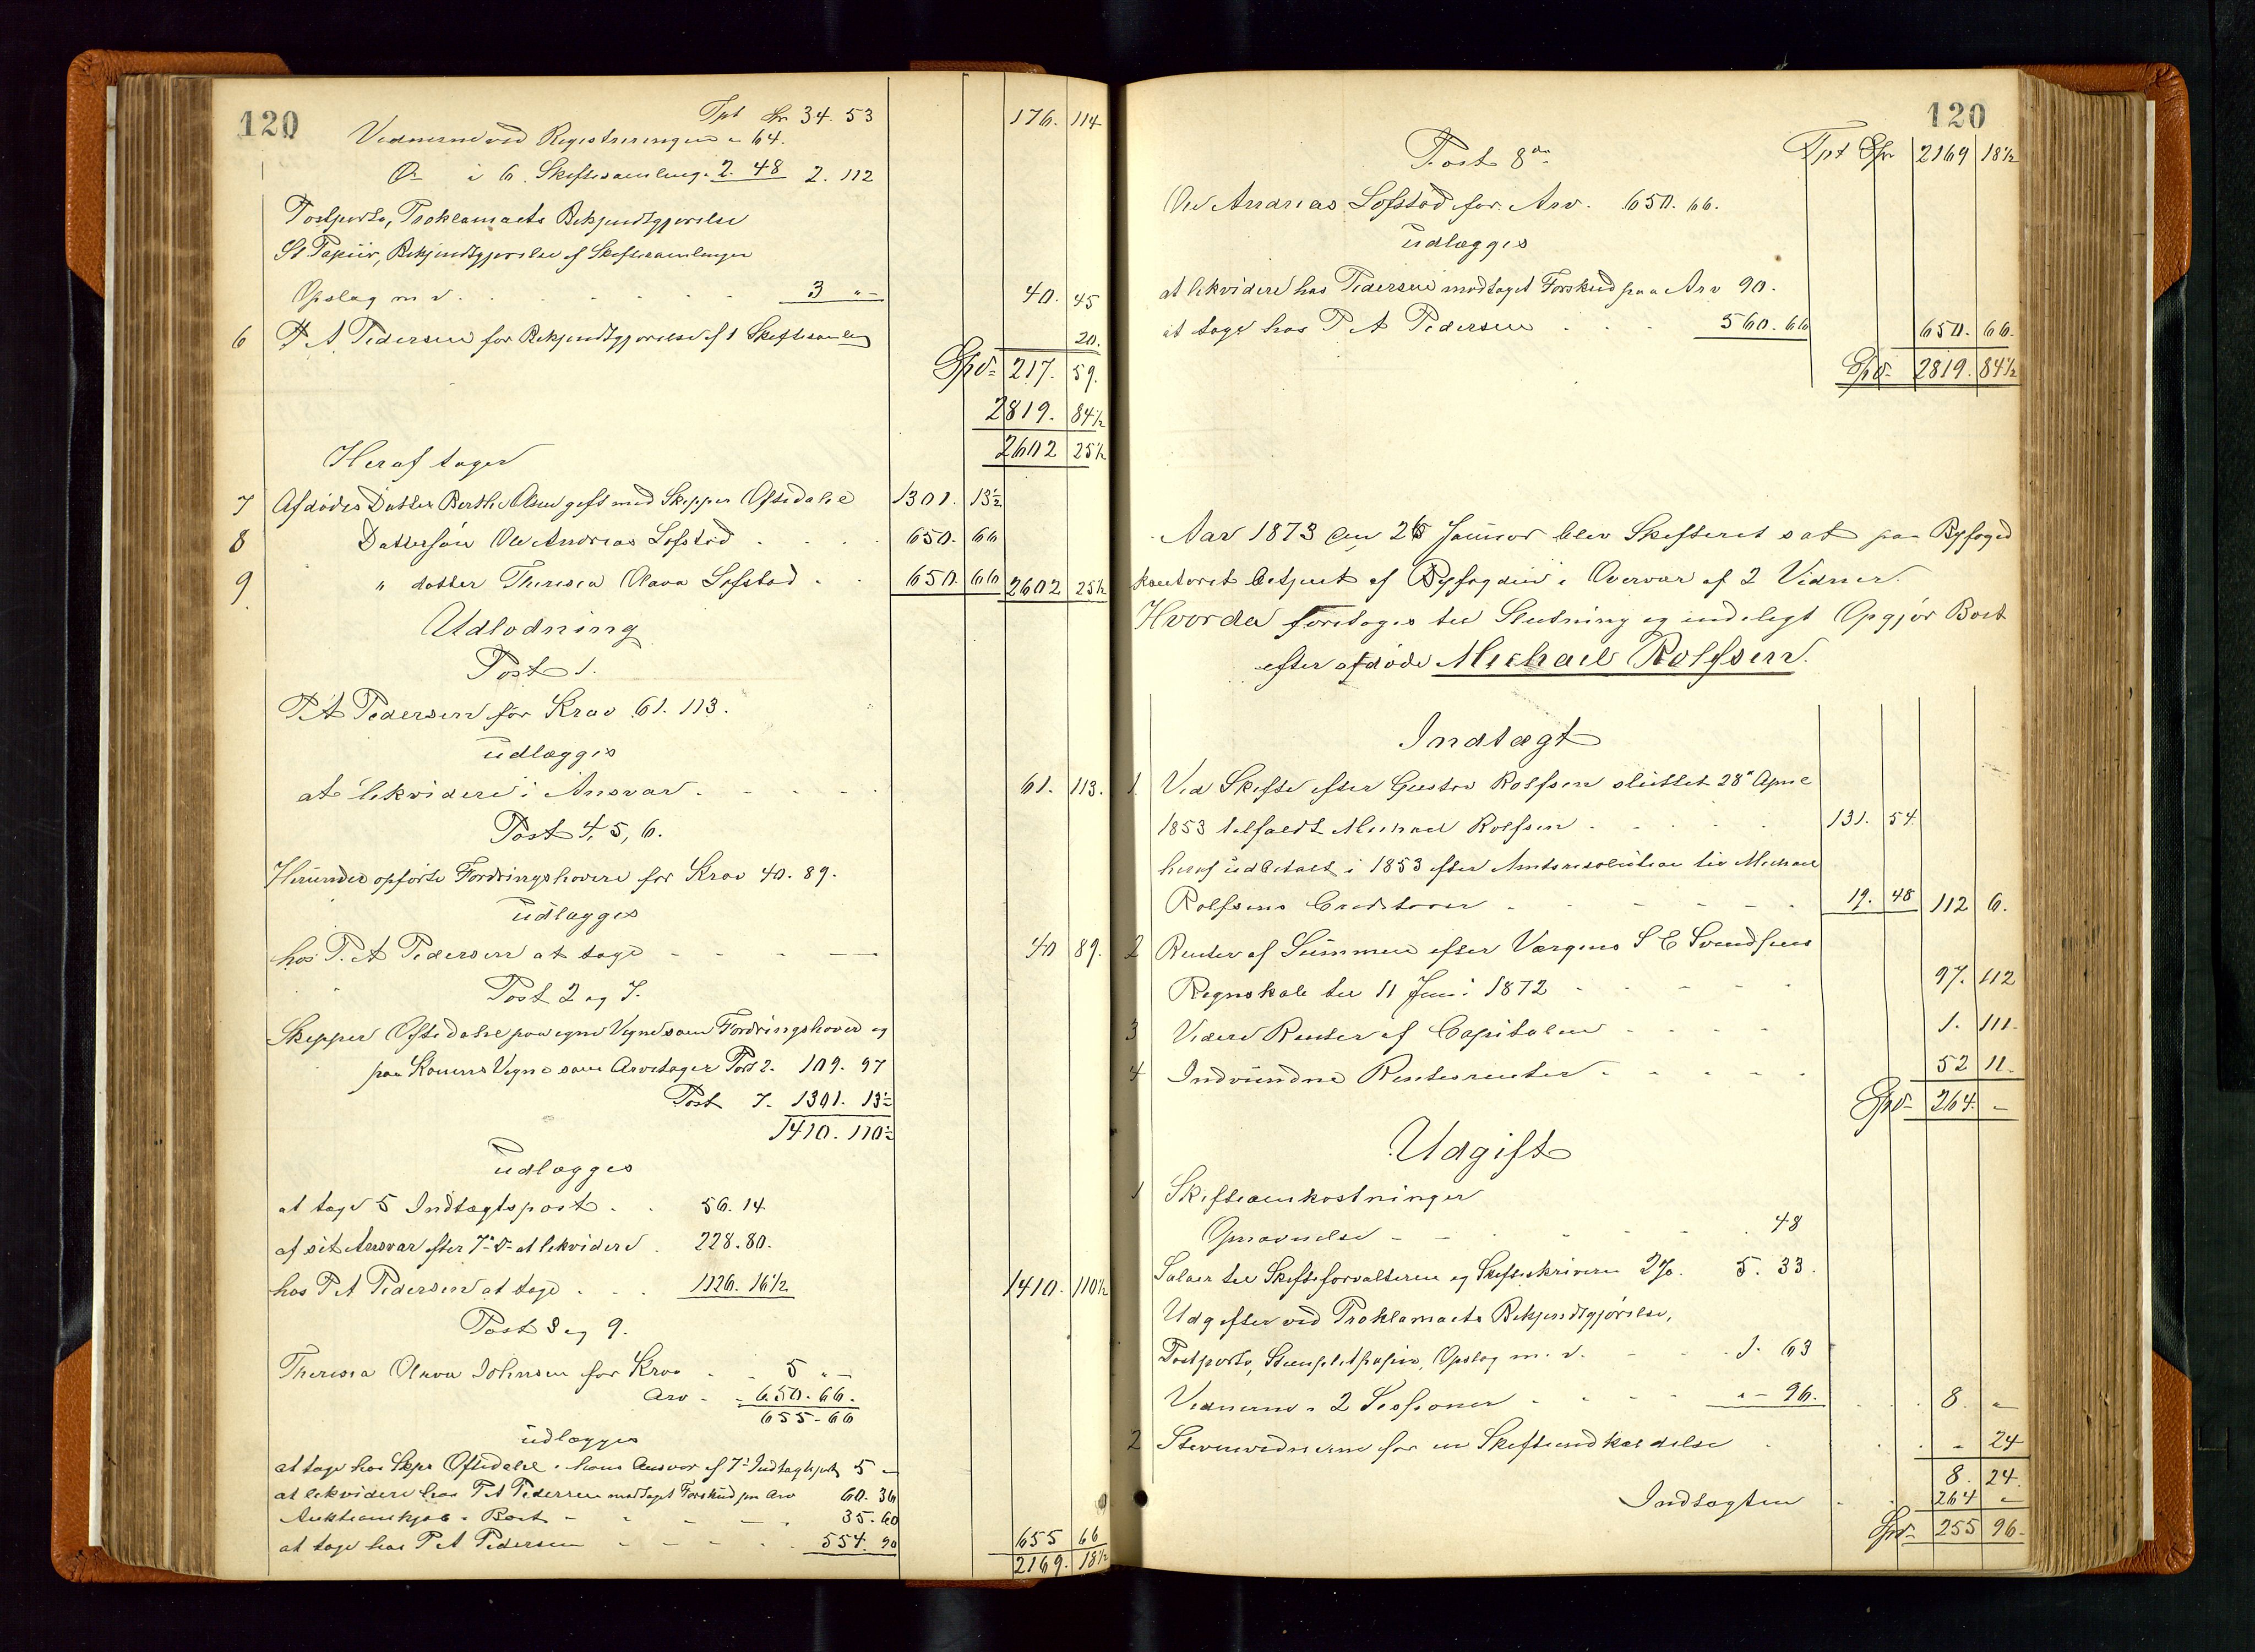 120
Tpt Sp 34. 53 176. 114
Vidnerne ved Registreringen " 64.
Do i 6. Skiftesamling. 2. 48 2. 112
Postporto, Proklamaets Bekjendtgjørelse
St Papiir, Bekjendtgjørelse af Skiftesamlinger
Opslag m v. 3 " – 40. 45
6 P A Pedersen for Bekjendtgjørelse af 1 Skiftesamlg 20.
Spd 217. 59.
2819. 84½
2602 25½
Heraf tager
7 Afdødes Datter Berthe Olsen gift med Skipper Oftedahl 1301. 13½
8 Dattersøn Ole Andreas Lofstad 650. 66
9 " datter Theresia Olava Lofstad 650. 66 2602 25½
Udlodning
Post 1.
P A Pedersen for Krav 61. 113.
udlægges
at likvidere i Ansvar 61. 113.
Post 4, 5, 6.
Herunder opførte Fordringshavere for Krav 40. 89.
udlægges
hos P. A Pedersen at tage 40 89.
Post 2 og 7.
Skipper Oftedahl paa egne Vegne som Fordringshaver og
paa Konens Vegne som Arvetager Post 2. 109. 97
Post 7. 1301. 13½
1410. 110½
udlægges
at tage 5 Indtægtspost 56. 14
af sit Ansvar efter 7de do at likvidere 228. 80.
hos P A Pedersen at tage 1126. 16½ 1410. 110½
Post 3 og 9.
Theresia Olava Johnsen for Krav 5 " –
Arv 650. 66.
655 – 66
udlægges
at tage hos Skpr Oftedahl i hans Ansvar af 7de Indtægtspost 5 –
at likvidere hos P A Pedersen modtaget Forskud paa Arv 60. 36
Auktionskjøb i Boet 35. 60
at tage hos P A Pedersen 554. 90 655 66
2169. 18½
120
Tpt Spd 2169 18½
Post 8de
Ole Andreas Lofstad for Arv 650. 66.
udlægges
at likvidere hos Pedersen modtaget Forskud paa Arv 90.
at tage hos P A Pedersen 560. 66 650. 66.
Spd 2819. 84½
Aar 1873 den 26 Januar blev Skifteret sat paa Byfoged
kontoret betjent af Byfogden i Overvær af 2 Vidner.
Hvorda foretoges til Slutning og endeligt Opgjør Boet
efter afdøde Michael Rolfsen.
Indtægt
1. Ved Skifte efter Gustav Rolfsen sluttet 28de April
1853 tilfaldt Michael Rolfsen 131. 54.
heraf udbetalt i 1853 efter Amtsresolution til Michael
Rolfsens Creditorer 19. 48 112 6.
2 Renter af Summen efter Værgens S E Svendsens
Regnskab til 11 Juni 1872 97. 112
3 Videre Renter af Capitalen 1. 111.
4 Indvundne Rentesrenter 52 11.
Spd 264. –
Udgift
1 Skifteomkostninger
Opnævnelse 48
Salær til Skifteforvalteren og Skifteskriveren 2%. 5. 33.
Udgifter ved Proklamaets Bekjendtgjørelse,
Postporto, Stemplet papir, Opslag m. v. 1. 63
Vidnerne i 2 Sessioner " – 96. 8. "
2 Stevnevidnerne for en Skifteindkaldelse " 24
8. 24.
Indtægten 264 "
Spd 255 96